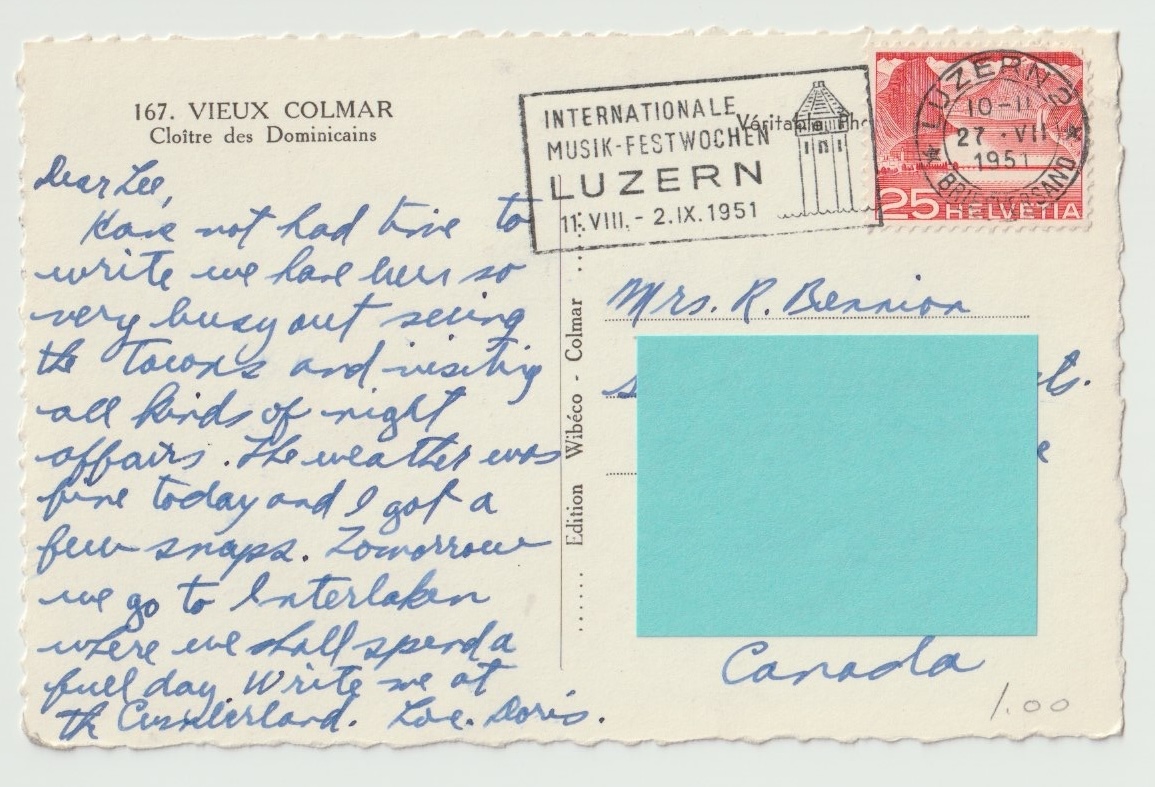 167. VIEUX COLMAR
Cloître des Dominicains
Dear Lee,
Have not had time to
write we have been so
very busy out seeing
the towns and visiting
all kinds of night
affairs. The weather was
fine today and I got a
few snaps. Tomorrow
we go to Interlaken
where we shall spend a
full day. Write me at
the Cumberland. Love. Doris.
INTERNATIONALE
MUSIK-FESTWOCHEN
LUZERN
11.VIII.- 2.IX.1951
Véritable Pho
LUZERN 2
10-11
27.VII
1951
BRIEFVERSAND
25 HELVETIA
Edition Wibéco - Colmar
Mrs. R. Bennion
Canada
1.00